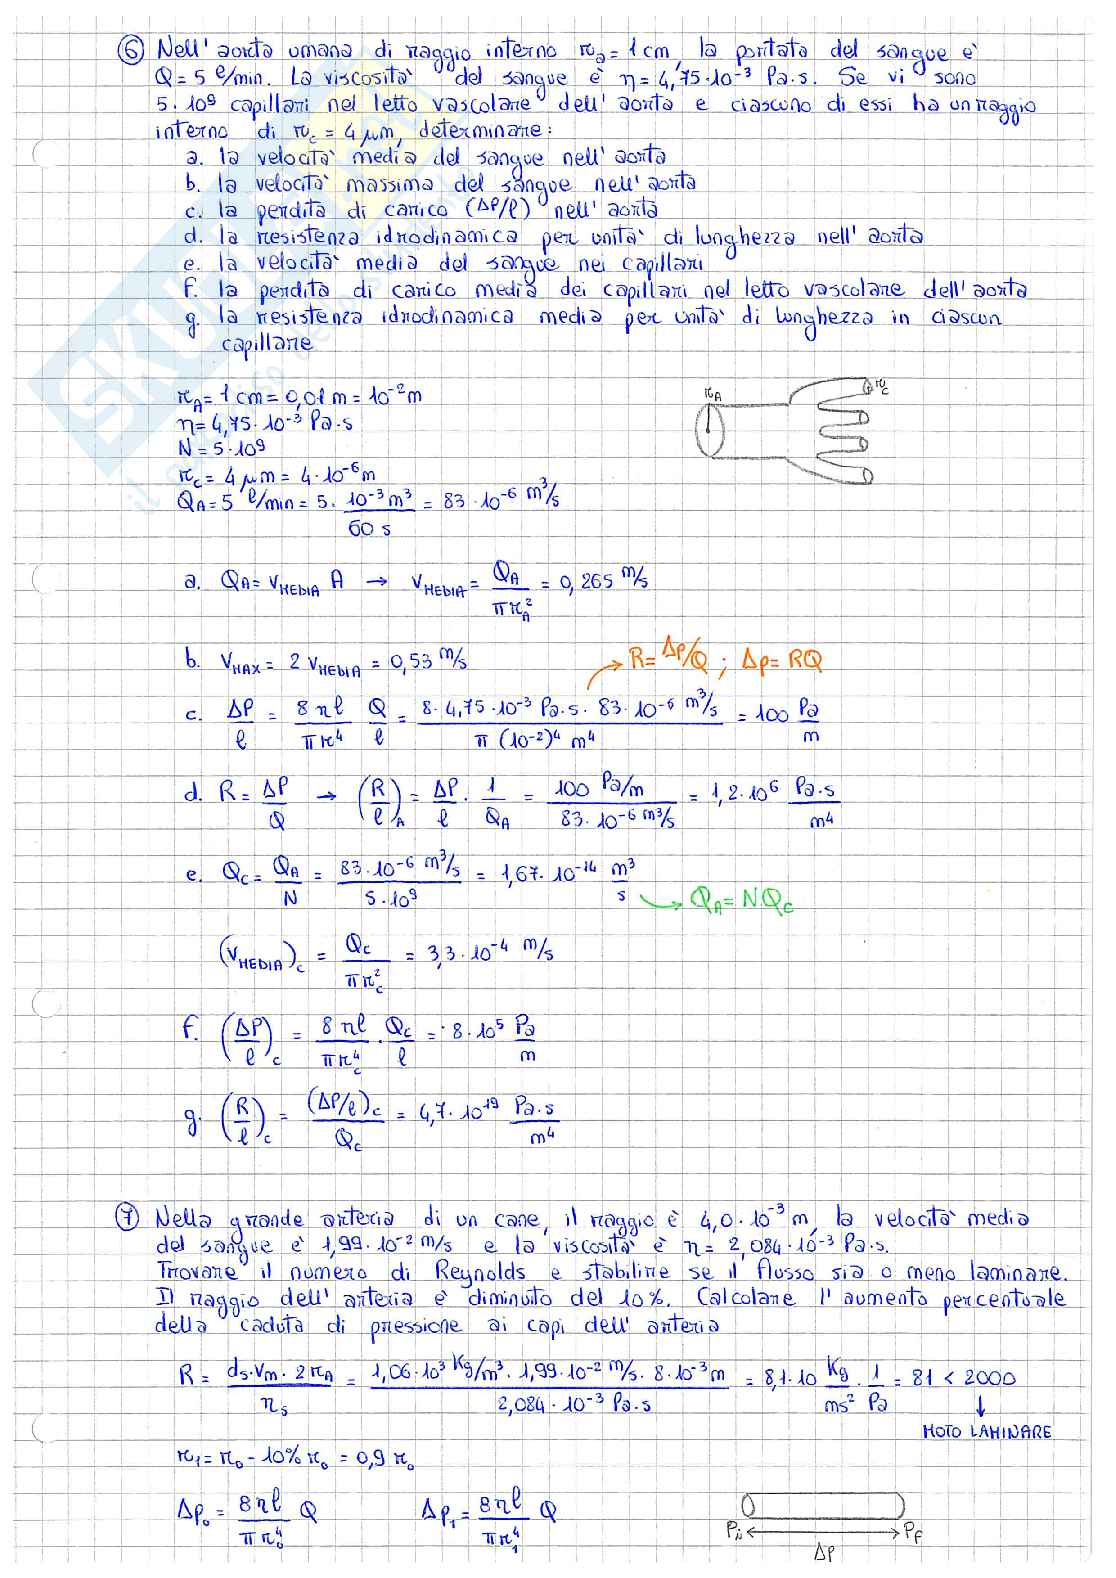 ⑥ Nell'aorta umana di raggio interno r₂ = 1 cm, la portata del sangue è
Q = 5 ℓ/min. La viscosità del sangue è η = 4,75·10⁻³ Pa·s. Se vi sono
5·10⁹ capillari nel letto vascolare dell'aorta e ciascuno di essi ha un raggio
interno di r_c = 4 μm, determinare:
a. la velocità media del sangue nell'aorta
b. la velocità massima del sangue nell'aorta
c. la perdita di carico (ΔP/ℓ) nell'aorta
d. la resistenza idrodinamica per unità di lunghezza nell'aorta
e. la velocità media del sangue nei capillari
f. la perdita di carico media dei capillari nel letto vascolare dell'aorta
g. la resistenza idrodinamica media per unità di lunghezza in ciascun
capillare
r_A = 1 cm = 0,01 m = 10⁻² m
η = 4,75·10⁻³ Pa·s
N = 5·10⁹
r_c = 4 μm = 4·10⁻⁶ m
Q_A = 5 ℓ/min = 5· 10⁻³ m³ / 60 s = 83·10⁻⁶ m³/s
r_A r_c
a. Q_A = v_MEDIA A → v_MEDIA = Q_A / πr_A² = 0,265 m/s
b. v_MAX = 2 v_MEDIA = 0,53 m/s
R = ΔP/Q ; Δp = RQ
c. ΔP/ℓ = 8ηℓ/πr⁴ Q/ℓ = 8·4,75·10⁻³ Pa·s · 83·10⁻⁶ m³/s / π (10⁻²)⁴ m⁴ = 100 Pa/m
d. R = ΔP/Q → (R/ℓ)_A = ΔP/ℓ · 1/Q_A = 100 Pa/m / 83·10⁻⁶ m³/s = 1,2·10⁶ Pa·s/m⁴
e. Q_C = Q_A/N = 83·10⁻⁶ m³/s / 5·10⁹ = 1,67·10⁻¹⁴ m³/s → Q_A = N·Q_C
(v_MEDIA)_c = Q_C / πr_c² = 3,3·10⁻⁴ m/s
f. (ΔP/ℓ)_c = 8ηℓ/πr_c⁴ · Q_C/ℓ = 8·10⁵ Pa/m
g. (R/ℓ)_c = (ΔP/ℓ)_c / Q_C = 4,7·10¹⁹ Pa·s/m⁴
⑦ Nella grande arteria di un cane, il raggio è 4,0·10⁻³ m, la velocità media
del sangue è 1,99·10⁻² m/s e la viscosità è η = 2,084·10⁻³ Pa·s.
Trovare il numero di Reynolds e stabilire se il flusso sia o meno laminare.
Il raggio dell'arteria è diminuito del 10%. Calcolare l'aumento percentuale
della caduta di pressione ai capi dell'arteria
R = d_S·v_M·2r_A / η_S = 1,06·10³ Kg/m³ · 1,99·10⁻² m/s · 8·10⁻³ m / 2,084·10⁻³ Pa·s = 8,1·10 Kg/ms² · 1/Pa = 81 < 2000
↓
MOTO LAMINARE
r₁ = r₀ - 10% r₀ = 0,9 r₀
Δp₀ = 8ηℓ/πr₀⁴ Q Δp₁ = 8ηℓ/πr₁⁴ Q
P_i P_f
ΔP